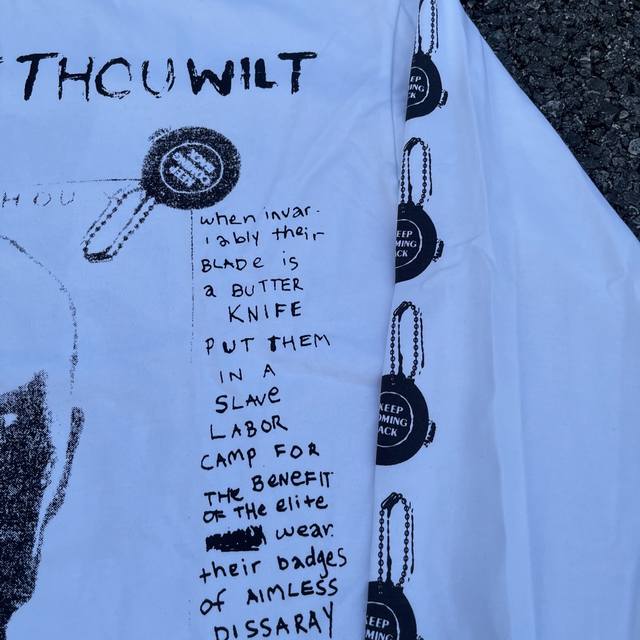 THOU WILT
HOU
when invar-
iably their
BLADE is
a BUTTER
KNIFE
PUT THEM
IN A
SLAVE
LABOR
CAMP FOR
THE BENEFIT
OF THE elite
wear
their badges
of AIMLESS
DISSARAY
EEP
MING
CK
EEP
OMING
CK
KEEP
OMING
ACK
KEEP